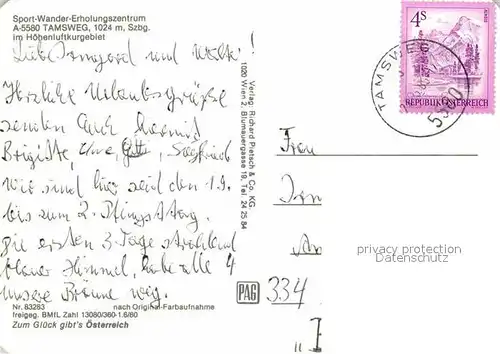 Sport-Wander-Erholungszentrum
A-5580 TAMSWEG, 1024 m, Szbg.
im Höhenluftkurgebiet
Liebe Irmgard und Walter!
Herzliche Urlaubsgrüße
senden Euch hiermit
Brigitte, Uwe, Siegfried
Wir sind hier seid den 1.9.
bis zum 2. Pfingsttag.
Die ersten 3 Tage strahlend
blauer Himmel, habe alle 4
unsere Bräune weg.
Nr. 83283 nach Original-Farbaufnahme
freigeg. BMfL Zahl 13080/360-1.6/80
Zum Glück gibt's Österreich
Verlag: Richard Pietsch & Co. KG
1020 Wien 2, Blumauergasse 19, Tel. 24 25 84
PAG
4S
ALMSEE
REPUBLIK ÖSTERREICH
TAMSWEG
5580
Frau
334
privacy protection
Datenschutz